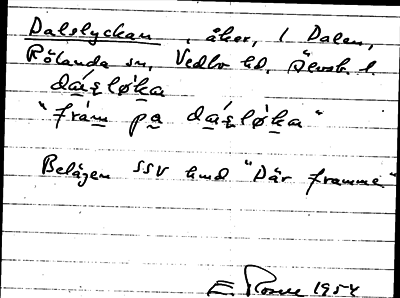 Dalslyckan, åker, 1 Dalen,
Rölanda sn, Vedbo hd, Älvsb. l.
dáꞩløka
"frám pa dáꞩløka"
Belägen SSV hmd "Där framme"
E. Rosell 1954